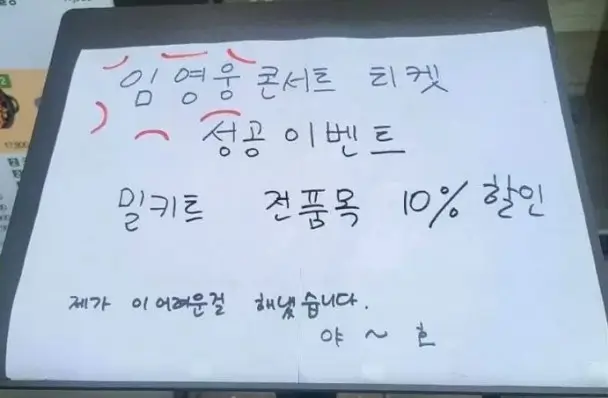 임영웅 콘서트 티켓
성공 이벤트
밀키트 전품목 10% 할인
제가 이 어려운걸 해냈습니다.
야 ~ 호